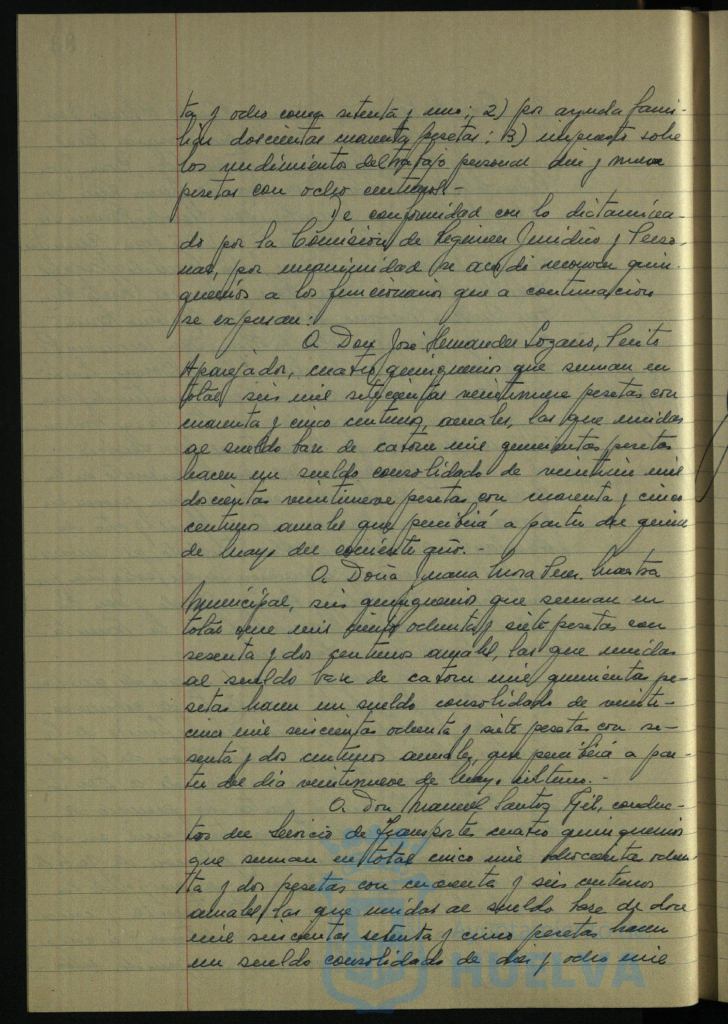 ta y ocho coma setenta y uno; 2) por ayuda fami-
liar doscientas cuarenta pesetas; 3) impuesto sobre
los rendimientos del trabajo personal diez y nueve
pesetas con ocho centimos.-
De conformidad con lo dictamina-
do por la Comisión de Régimen Jurídico y Perso-
nal, por unanimidad se acordó reconocer quin-
quenios a los funcionarios que a continuación
se expresan:
A Don José Hernandez Lozano, Perito
Aparejador, cuatro quinquenios que suman en
total seis mil setecientas veintinueve pesetas con
cuarenta y cinco centimos, anuales, las que unidas
al sueldo base de catorce mil quinientas pesetas
hacen un sueldo consolidado de veintiun mil
doscientas veintinueve pesetas con cuarenta y cinco
centimos anuales que percibirá a partir del quince
de Mayo del corriente año.-
A Doña Juana Mora Perez. Maestra
Municipal, seis quinquenios que suman en
total once mil ciento ochenta y siete pesetas con
sesenta y dos centimos anuales, las que unidas
al sueldo base de catorce mil quinientas pe-
setas hacen un sueldo consolidado de veinti-
cinco mil seiscientas ochenta y siete pesetas con se-
senta y dos centimos anuales, que percibirá a par-
tir del dia veintinueve de Mayo último.-
A Don Manuel Santos Gil, conduc-
tor del Servicio de Transportes cuatro quinquenios
que suman en total cinco mil ochocientas ochen-
ta y dos pesetas con cuarenta y seis centimos
anuales, las que unidas al sueldo base de doce
mil seiscientas setenta y cinco pesetas hacen
un sueldo consolidado de diez y ocho mil
HUELVA